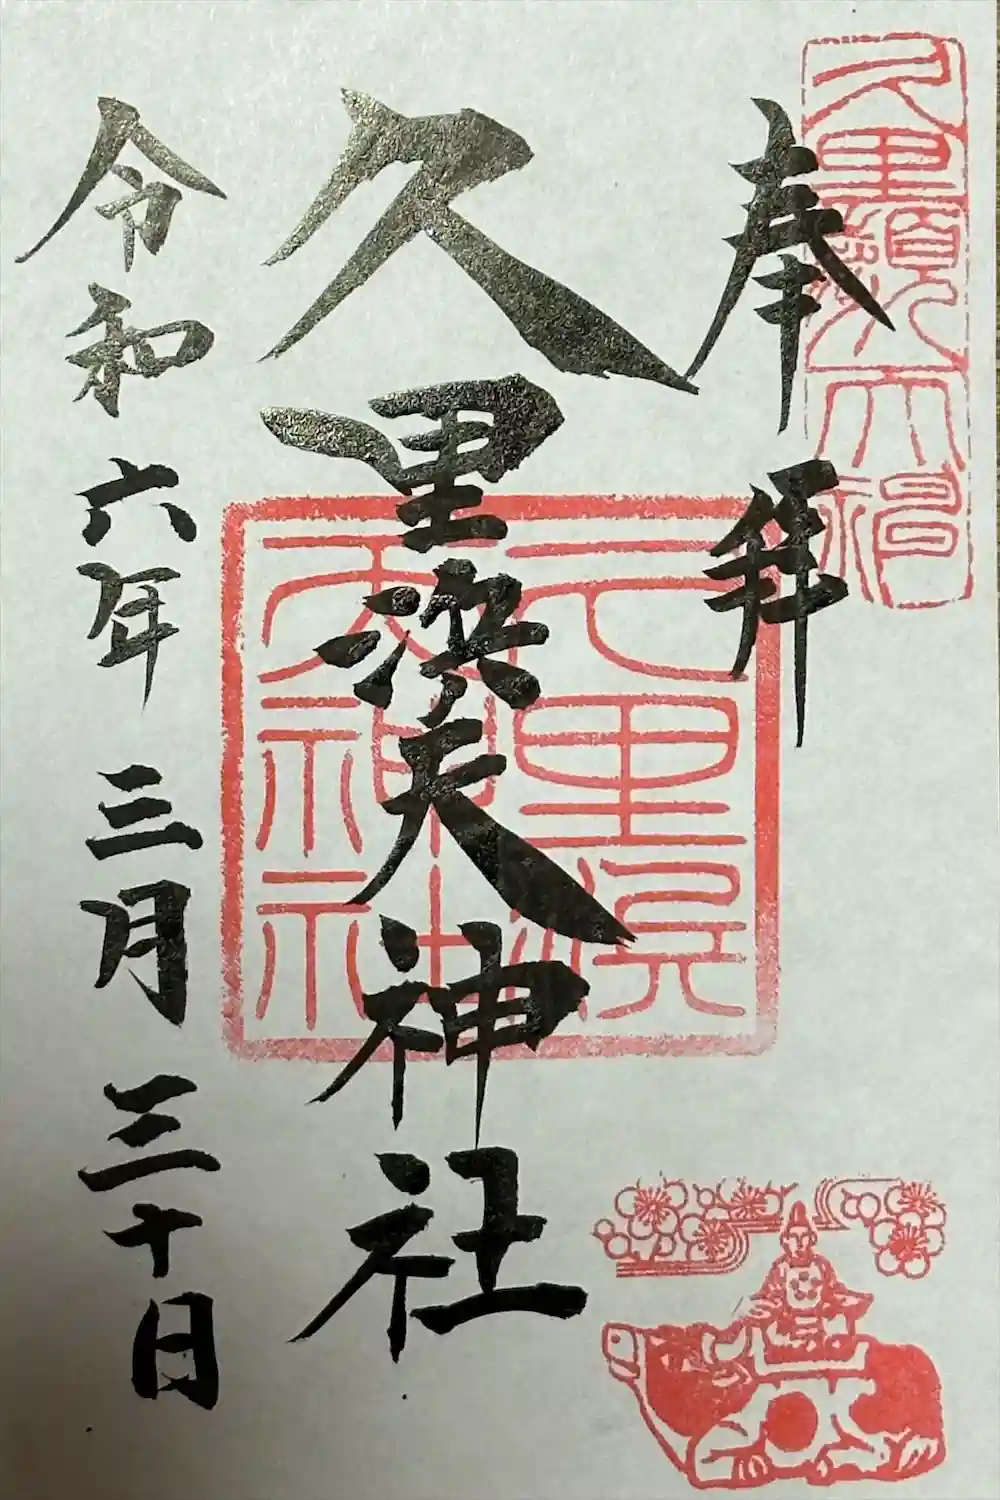 奉拝
久里浜天神社
久里浜
天神社
令和六年三月三十日